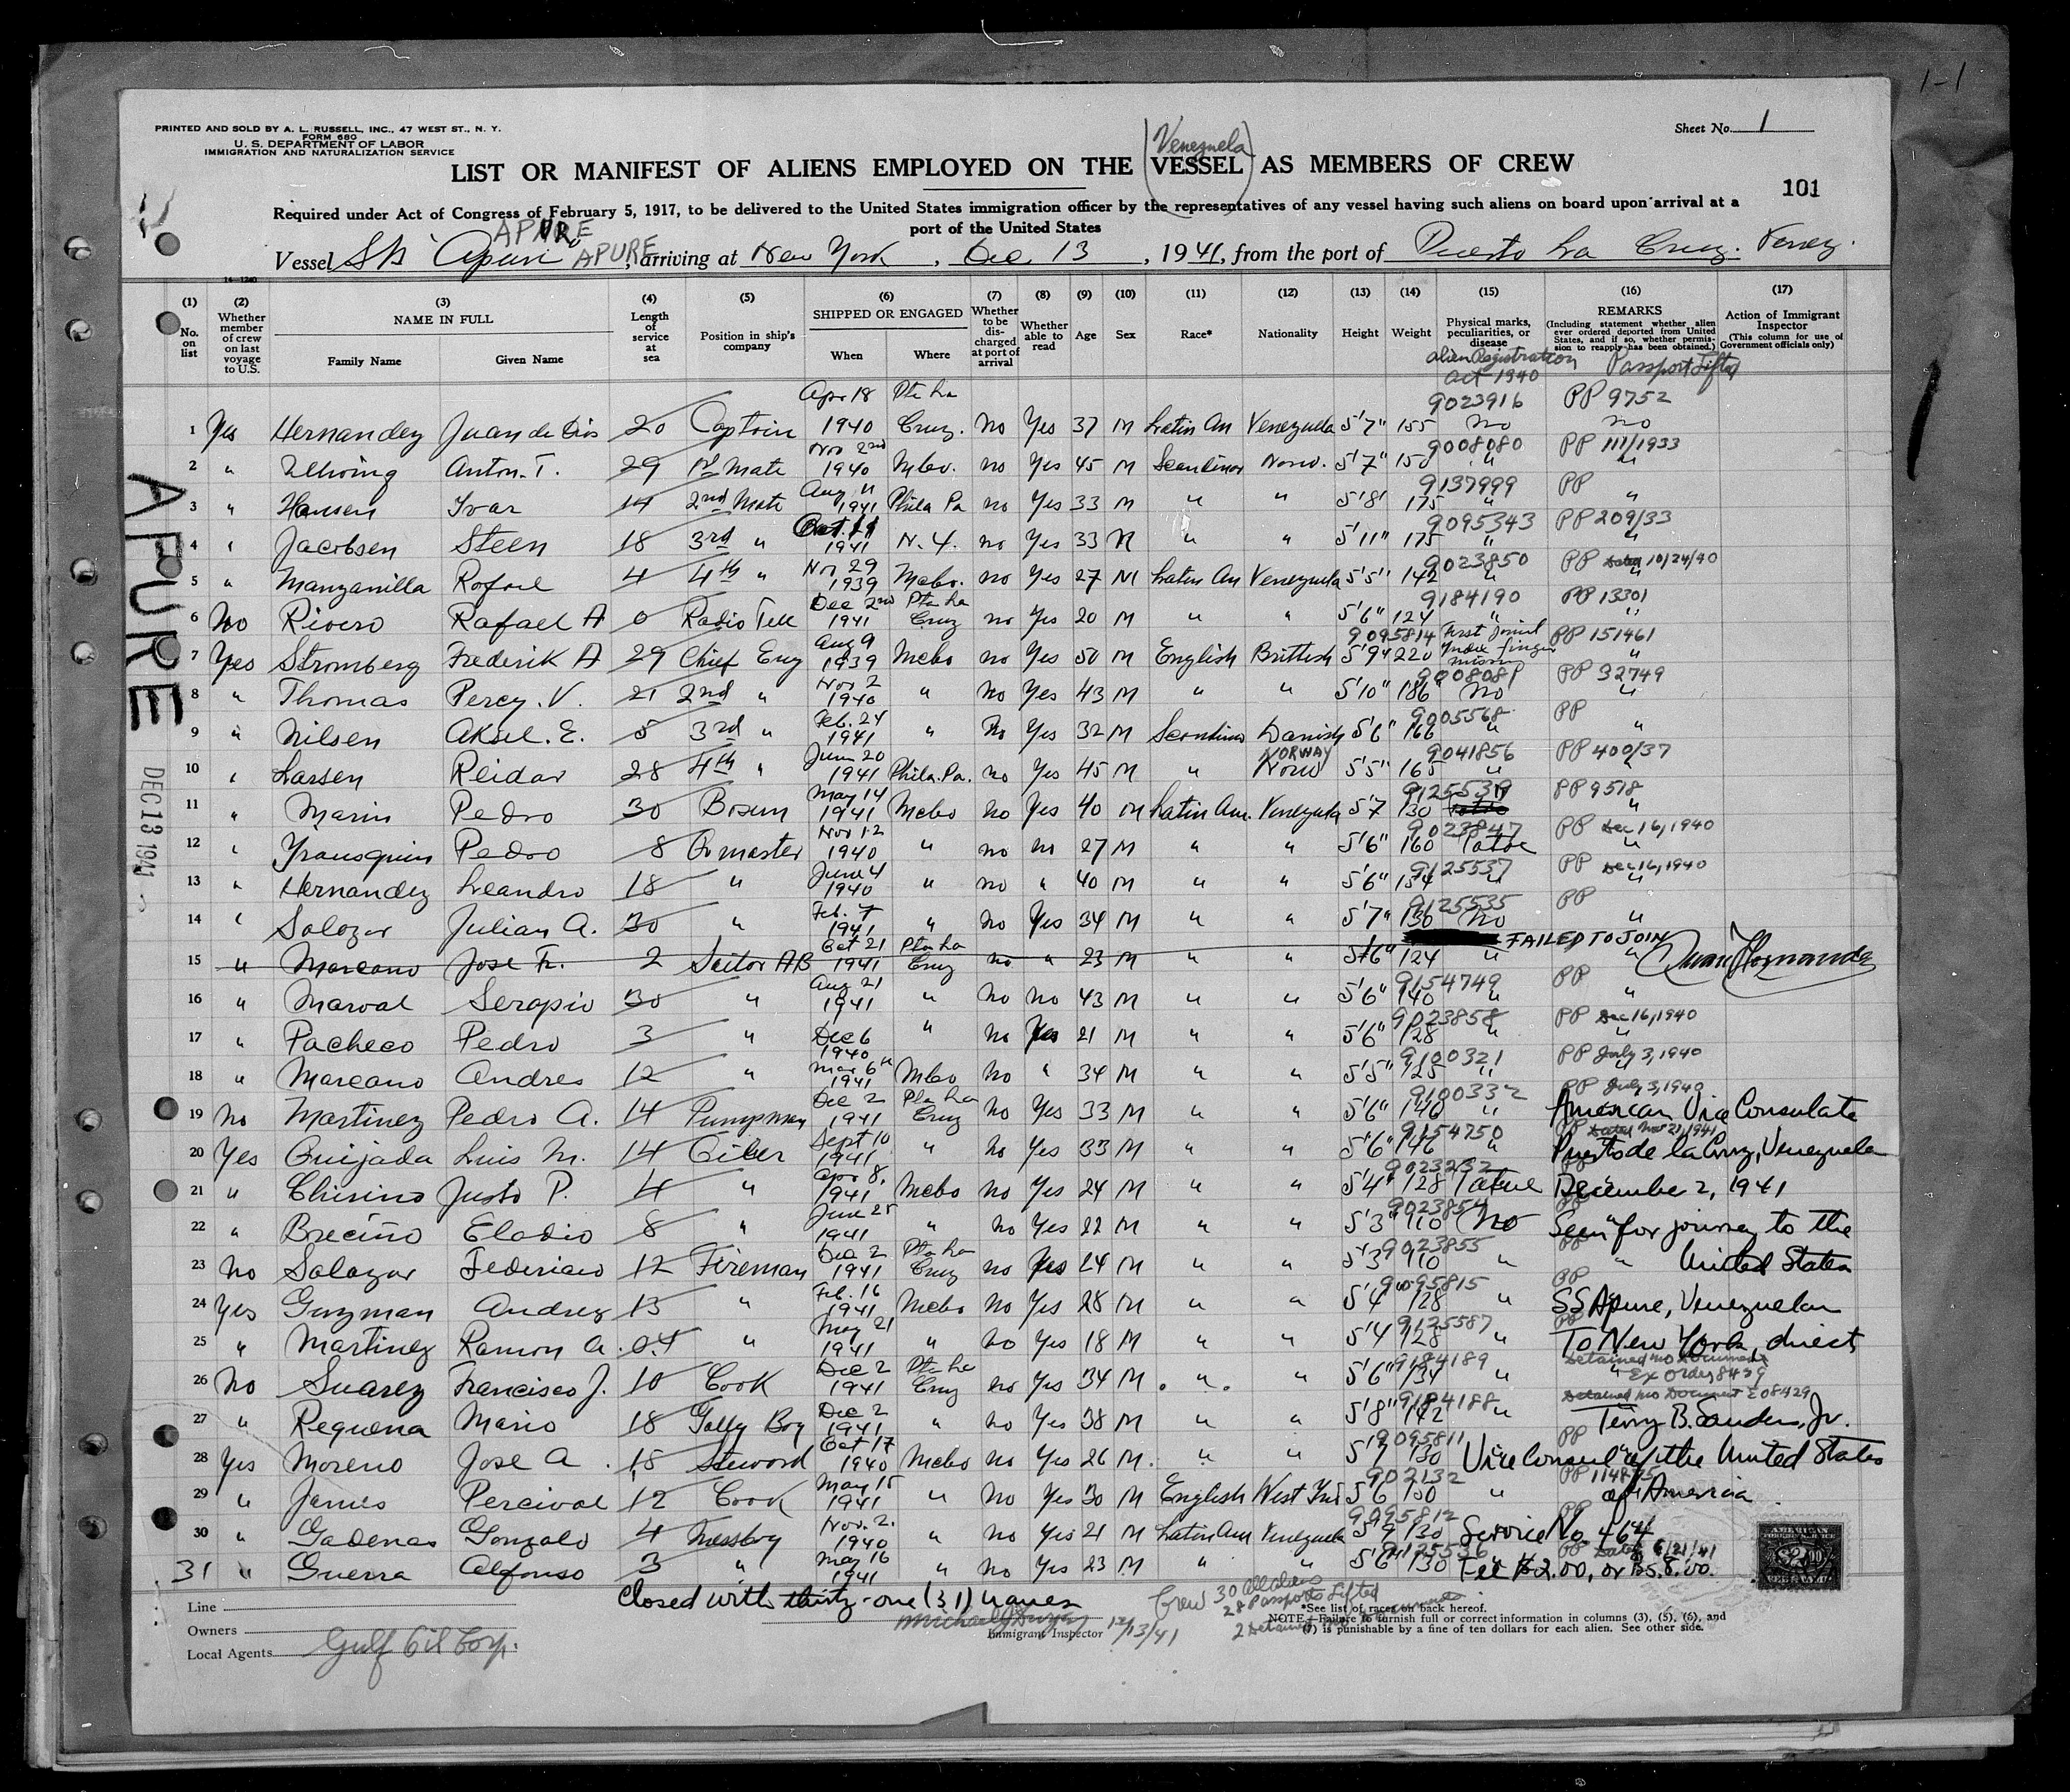 1-1
PRINTED AND SOLD BY A. L. RUSSELL, INC., 47 WEST ST., N. Y.
FORM 680
U. S. DEPARTMENT OF LABOR
IMMIGRATION AND NATURALIZATION SERVICE
Sheet No. 1
Venezuela
LIST OR MANIFEST OF ALIENS EMPLOYED ON THE VESSEL AS MEMBERS OF CREW
101
Required under Act of Congress of February 5, 1917, to be delivered to the United States immigration officer by the representatives of any vessel having such aliens on board upon arrival at a
port of the United States
APURE
Vessel SS Apure APURE, arriving at New York, Dec 13, 1941, from the port of Puerto La Cruz. Venez.
(1) No. on list (2) Whether member of crew on last voyage to U.S. (3) NAME IN FULL Family Name Given Name (4) Length of service at sea (5) Position in ship's company (6) SHIPPED OR ENGAGED When Where (7) Whether to be discharged at port of arrival (8) Whether able to read (9) Age (10) Sex (11) Race* (12) Nationality (13) Height (14) Weight (15) Physical marks, peculiarities, or disease (16) REMARKS (Including statement whether alien ever ordered deported from United States, and if so, whether permission to reapply has been obtained.) (17) Action of Immigrant Inspector (This column for use of Government officials only)
Alien Registration Act 1940 Passport Lifted
Apr 18 Pto La 9023916 PP 9752
1 Yes Hernandez Juan de Dios 20 Captain 1940 Cruz. No Yes 37 M Latin Am Venezuela 5'7" 155 No No
Nov 2nd 9008080 PP 111/1933
2 " Anton. T. 29 1st Mate 1940 Mcbo. no Yes 45 M Scandinav Norw. 5'7" 150 " "
Aug 11 9137999 PP
3 " Hansen Ivar 14 2nd Mate 1941 Phila Pa no Yes 33 M " " 5'8' 175 " "
Oct. 11 9095343 PP 209/33
4 " Jacobsen Steen 18 3rd " 1941 N.Y. no Yes 33 M " " 5'11" 175 " "
Nov 29 9023850 PP Dated 10/24/40
5 " Manzanilla Rafael 4 4th " 1939 Mcbo. no Yes 27 M Latin Am Venezuela 5'5" 142 " "
Dec 2nd Pto La 9184190 PP 13301
6 No Rivero Rafael A 0 Radio Tele 1941 Cruz no Yes 20 M " " 5'6" 124 " "
Aug 9 9095814 First joint PP 151461
7 Yes Stromberg Frederik A 29 Chief Eng 1939 Mcbo no Yes 50 M English Brittish 5'9" 220 Index finger missing "
Nov 2 9008081 PP 32749
8 " Thomas Percy. V. 21 2nd " 1940 " No Yes 43 M " " 5'10" 186 No "
Feb. 24 9005568 PP
9 " Nilsen Aksel. E. 5 3rd " 1941 " No Yes 32 M Scandinav Danish 5'6" 166 " "
June 20 NORWAY 9041856 PP 400/37
10 " Larsen Reidar 28 4th " 1941 Phila. Pa. no Yes 45 M " Norw 5'5" 165 " "
May 14 PP 9518
11 " Marin Pedro 30 Bosun 1941 Mcbo no Yes 40 M Latin Am. Venezuela 5'7 130 "
Nov 12 9023847 PP Dec 16, 1940
12 " Pedro 8 Qr master 1940 " no no 27 M " " 5'6" 160 Tatoe "
June 4 9125537 PP Dec 16, 1940
13 " Hernandez Leandro 18 " 1940 " no " 40 M " " 5'6" 154 " "
Feb. 7 9125535 PP
14 " Salazar Julian A. 30 " 1941 " No Yes 34 M " " 5'7" 130 No "
Oct 21 Pto La FAILED TO JOIN
15 " Marcano Jose Fr. 2 Sailor AB 1941 Cruz no " 23 M " " 5'6" 124 " " Juan Hernandez
Aug 21 9154749 PP
16 " Marval Serapio 30 " 1941 " No No 43 M " " 5'6" 140 " "
Dec 6 9023858 PP Dec 16, 1940
17 " Pacheco Pedro 3 " 1940 " No Yes 21 M " " 5'6" 128 " "
Mar 6th 9100321 PP July 3, 1940
18 " Marcano Andres 12 " 1941 Mcbo No " 34 M " " 5'5" 125 " "
Dec 2 Pto La 9100332 PP July 3, 1940
19 No Martinez Pedro A. 14 Pumpman 1941 Cruz No Yes 33 M " " 5'6" 146 " American Vice Consulate
Sept 10 9154750 PP Dated Nov 21, 1941
20 Yes Quijada Luis M. 14 Oiler 1941 " No Yes 33 M " " 5'6" 146 " Puerto de la Cruz, Venezuela
Apr 8, 9023232
21 " Chirino Justo P. 4 " 1941 Mcbo no Yes 24 M " " 5'4" 128 Tatue December 2, 1941
June 25 9023854 PP
22 " Breciño Eladio 8 " 1941 " No Yes 22 M " " 5'3" 110 No Seen for journey to the
Dec 2 Pto La 9023855 PP
23 No Salazar Federico 12 Fireman 1941 Cruz no Yes 24 M " " 5'3" 110 " " United States
Feb. 16 9095815 PP
24 Yes Guzman Andrez 13 " 1941 Mcbo No Yes 28 M " " 5'4" 128 " SS Apure, Venezuelan
May 21 9125587 PP
25 " Martinez Ramon A. 0.4 " 1941 " No Yes 18 M " " 5'4 128 " To New York, direct
Dec 2 Pto La 9184189 Detained no Document
26 No Suarez Francisco J. 10 Cook 1941 Cruz no Yes 34 M " " 5'6" 134 " " Ex Order 8429
Dec 2 9184188 Detained no Document EO 8429
27 " Requena Mario 18 Gally Boy 1941 " No Yes 38 M " " 5'8" 142 " Terry B. Sanders, Jr.
Oct 17 9095811 PP
28 Yes Moreno Jose A. 15 Steward 1940 Mcbo no Yes 26 M " " 5'7 130 Vice Consul of the United States
May 15 902132 PP
29 " James Percival 12 Cook 1941 " No Yes 30 M English West Ind 5'6 150 " of America.
Nov. 2. 9095812 PP
30 " Cadenas Gonzalo 4 Messboy 1940 " no Yes 21 M Latin Am Venezuela 5'7 130 Service No. 464
May 16 9125536 PP Dated 6/21/41
31 " Guerra Alfonso 3 " 1941 " No Yes 23 M " " 5'6" 130 Fee $2.00, or Bs. 8.00.
Closed with thirty-one (31) names
Crew 30 all aliens
28 Passports Lifted
2 Detained
Immigrant Inspector 12/13/41
*See list of races on back hereof.
NOTE.—Failure to furnish full or correct information in columns (3), (5), (6), and
(7) is punishable by a fine of ten dollars for each alien. See other side.
Line
Owners
Local Agents Gulf Oil Corp.
APURE
DEC 13 1941
AMERICAN
FOREIGN SERVICE
$2.00